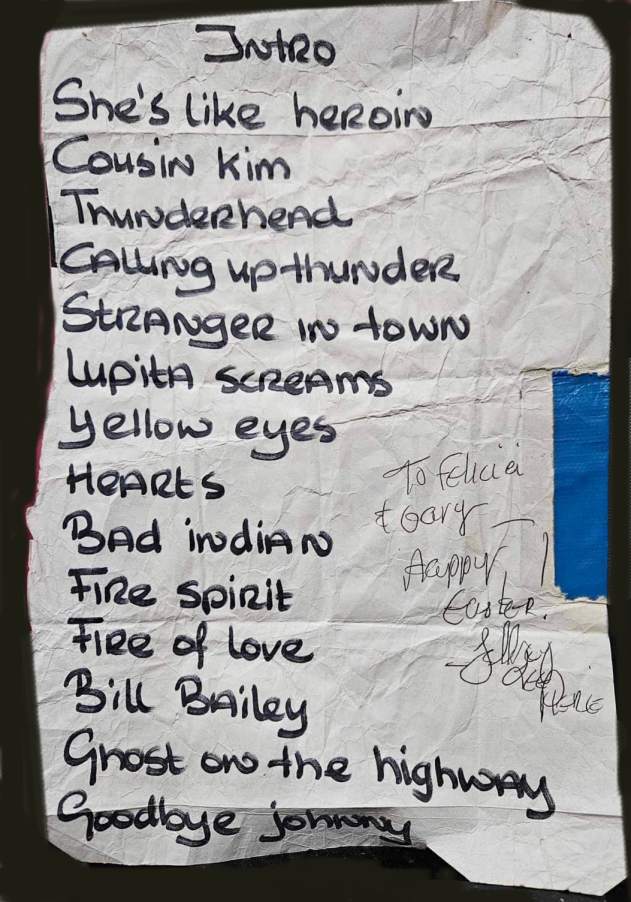 Intro
She's like heroin
Cousin Kim
Thunderhead
Calling up thunder
Stranger in town
Lupita screams
Yellow eyes
Hearts
Bad indian
Fire spirit
Fire of love
Bill Bailey
Ghost on the highway
Goodbye johnny
To Felicia
& Gary —
Happy
Easter. !
Jeffrey
Lee
Pierce